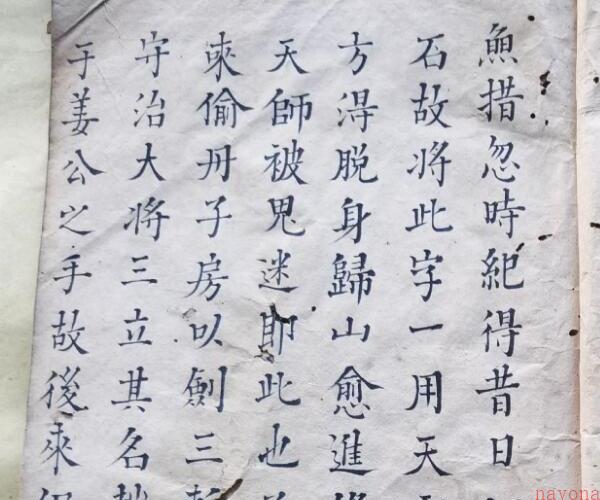 魚措忽時紀得昔日
石故将此字一用天
方淂脱身歸山愈進
天師被鬼迷即此也
來偷丹子房以劍三
守治大将三立其名
于姜公之手故後來
nayona